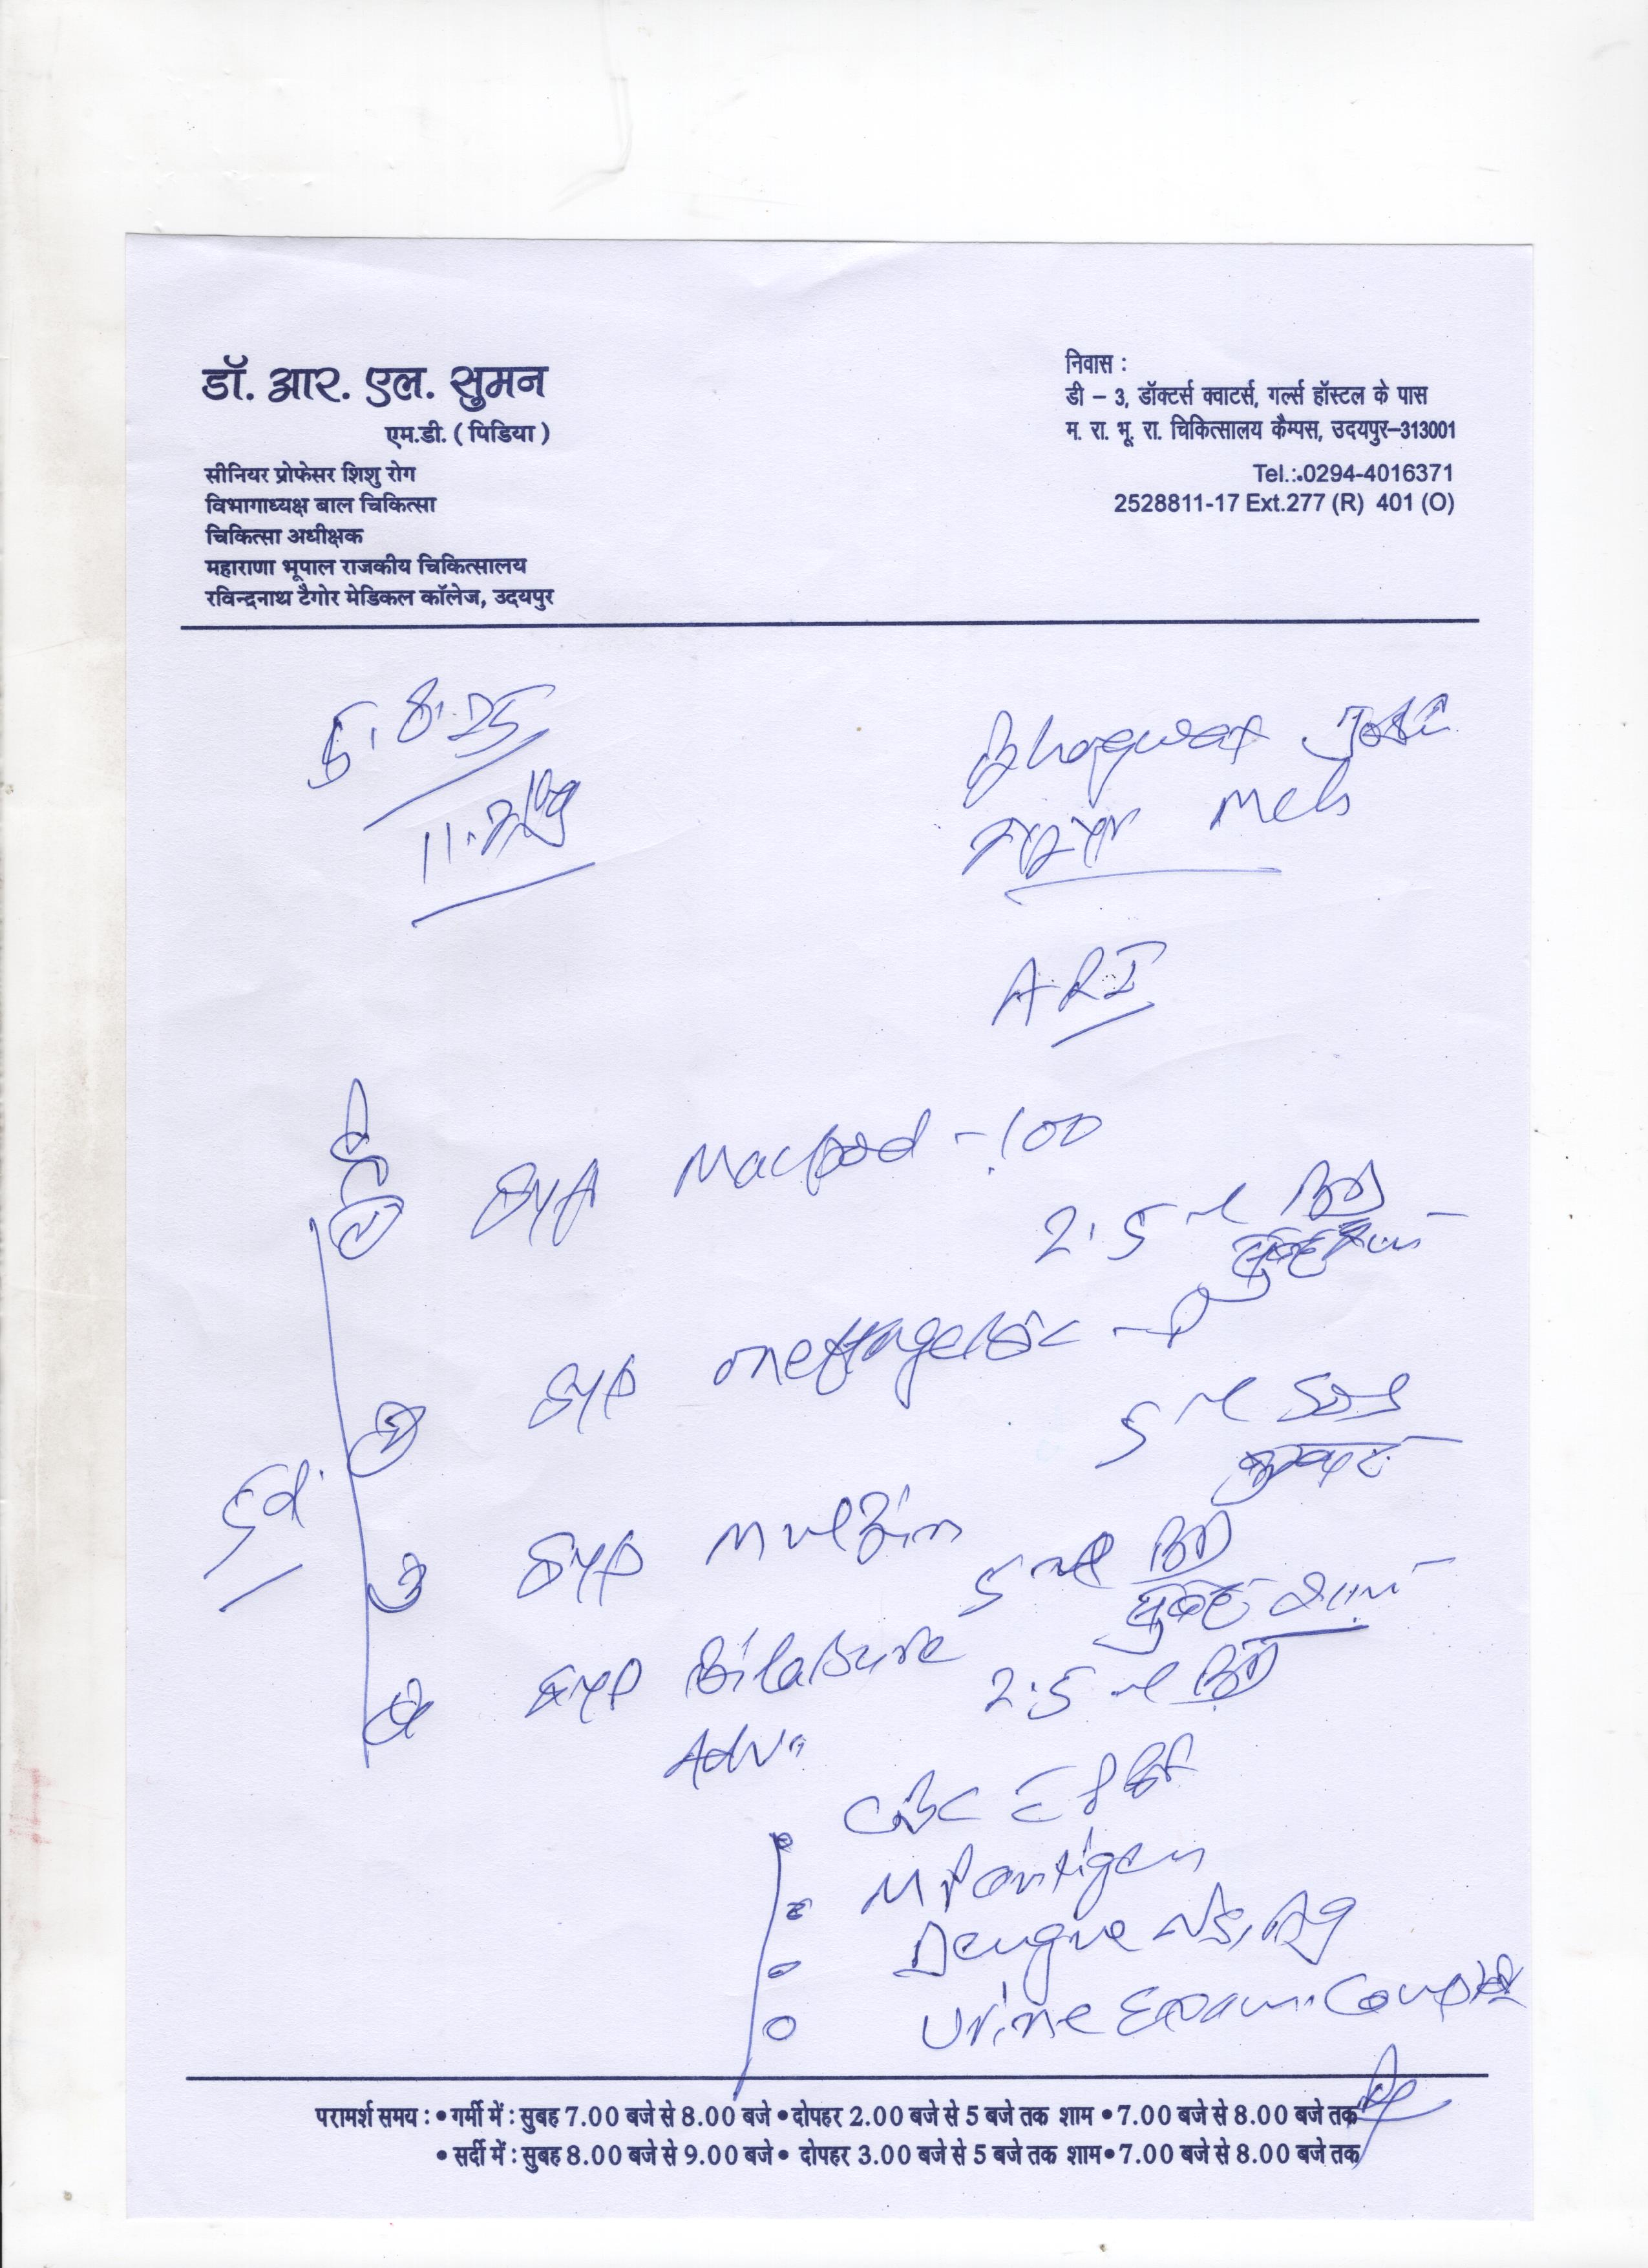 डॉ. आर. एल. सुमन
एम.डी. ( पिडिया )
सीनियर प्रोफेसर शिशु रोग
विभागाध्यक्ष बाल चिकित्सा
चिकित्सा अधीक्षक
महाराणा भूपाल राजकीय चिकित्सालय
रविन्द्रनाथ टैगोर मेडिकल कॉलेज, उदयपुर
निवास :
डी – 3, डॉक्टर्स क्वाटर्स, गर्ल्स हॉस्टल के पास
म. रा. भू. रा. चिकित्सालय कैम्पस, उदयपुर–313001
Tel.:.0294-4016371
2528811-17 Ext.277 (R) 401 (O)
5.8.25
Bhagwat
ARI
Syp -100
2.5 ml BD
सुबह शाम
Syp -P
5 ml SOS
5d.
Syp
5 ml BD
सुबह शाम
Syp
2.5 ml BD
Adv.
CBC
MP antigen
Dengue NS1 Ag
Urine Exam. Complete
परामर्श समय : • गर्मी में : सुबह 7.00 बजे से 8.00 बजे • दोपहर 2.00 बजे से 5 बजे तक शाम • 7.00 बजे से 8.00 बजे तक
• सर्दी में : सुबह 8.00 बजे से 9.00 बजे • दोपहर 3.00 बजे से 5 बजे तक शाम • 7.00 बजे से 8.00 बजे तक